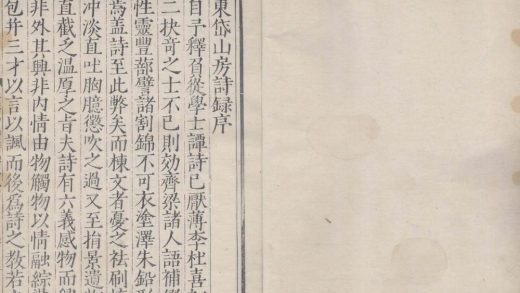 東岱山房詩録序
自予釋負從學士譚詩已厭薄李杜喜
二抉奇之士不已則効齊梁諸人語補
性靈豐蔀譬諸割錦不可衣塗澤朱鉛
焉盖詩至此弊矣而棟文者憂之祛刷
沖淡直吐胸臆懲吹之過又至捐景遺
直截乏温厚之旨夫詩有六義感物而
非外其興非内情由物觸物以情融綜
包并三才以言以諷而後爲詩之教若